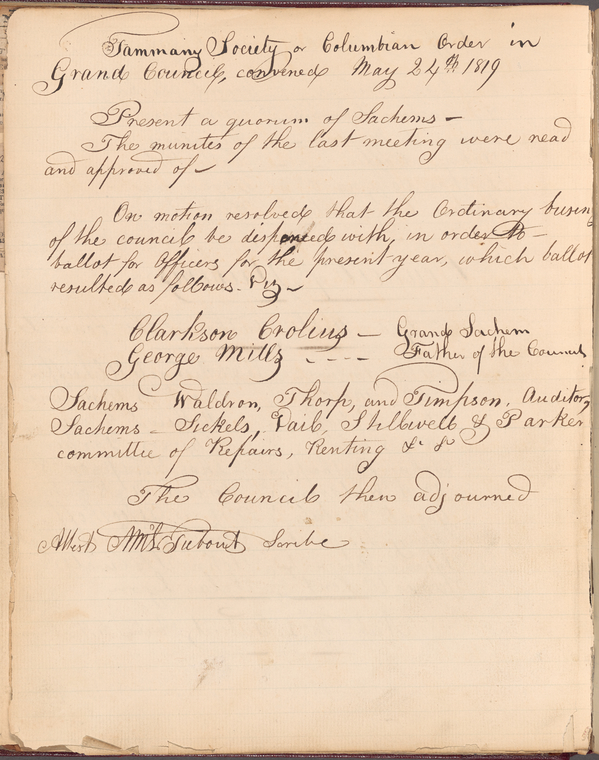 Tammany Society or Columbian Order in
Grand Council, convened May 24th 1819
Present a quorum of Sachems -
The munites of the last meeting were read
and approved of -
On motion resolved that the Ordinary busin
of the council be dispenced with, in order to -
ballot for Officers for the present year, which ballot
resulted as follows. Viz -
Clarkson Crolius - Grand Sachem
George Mills - - - - Father of the Council
Sachems Waldron, Thorp, and Timpson, Auditors
Sachems - Sickels, Vail, Stillwell & Parker
committie of Repairs, Renting & &
The Council then adjourned
Attest Scribe